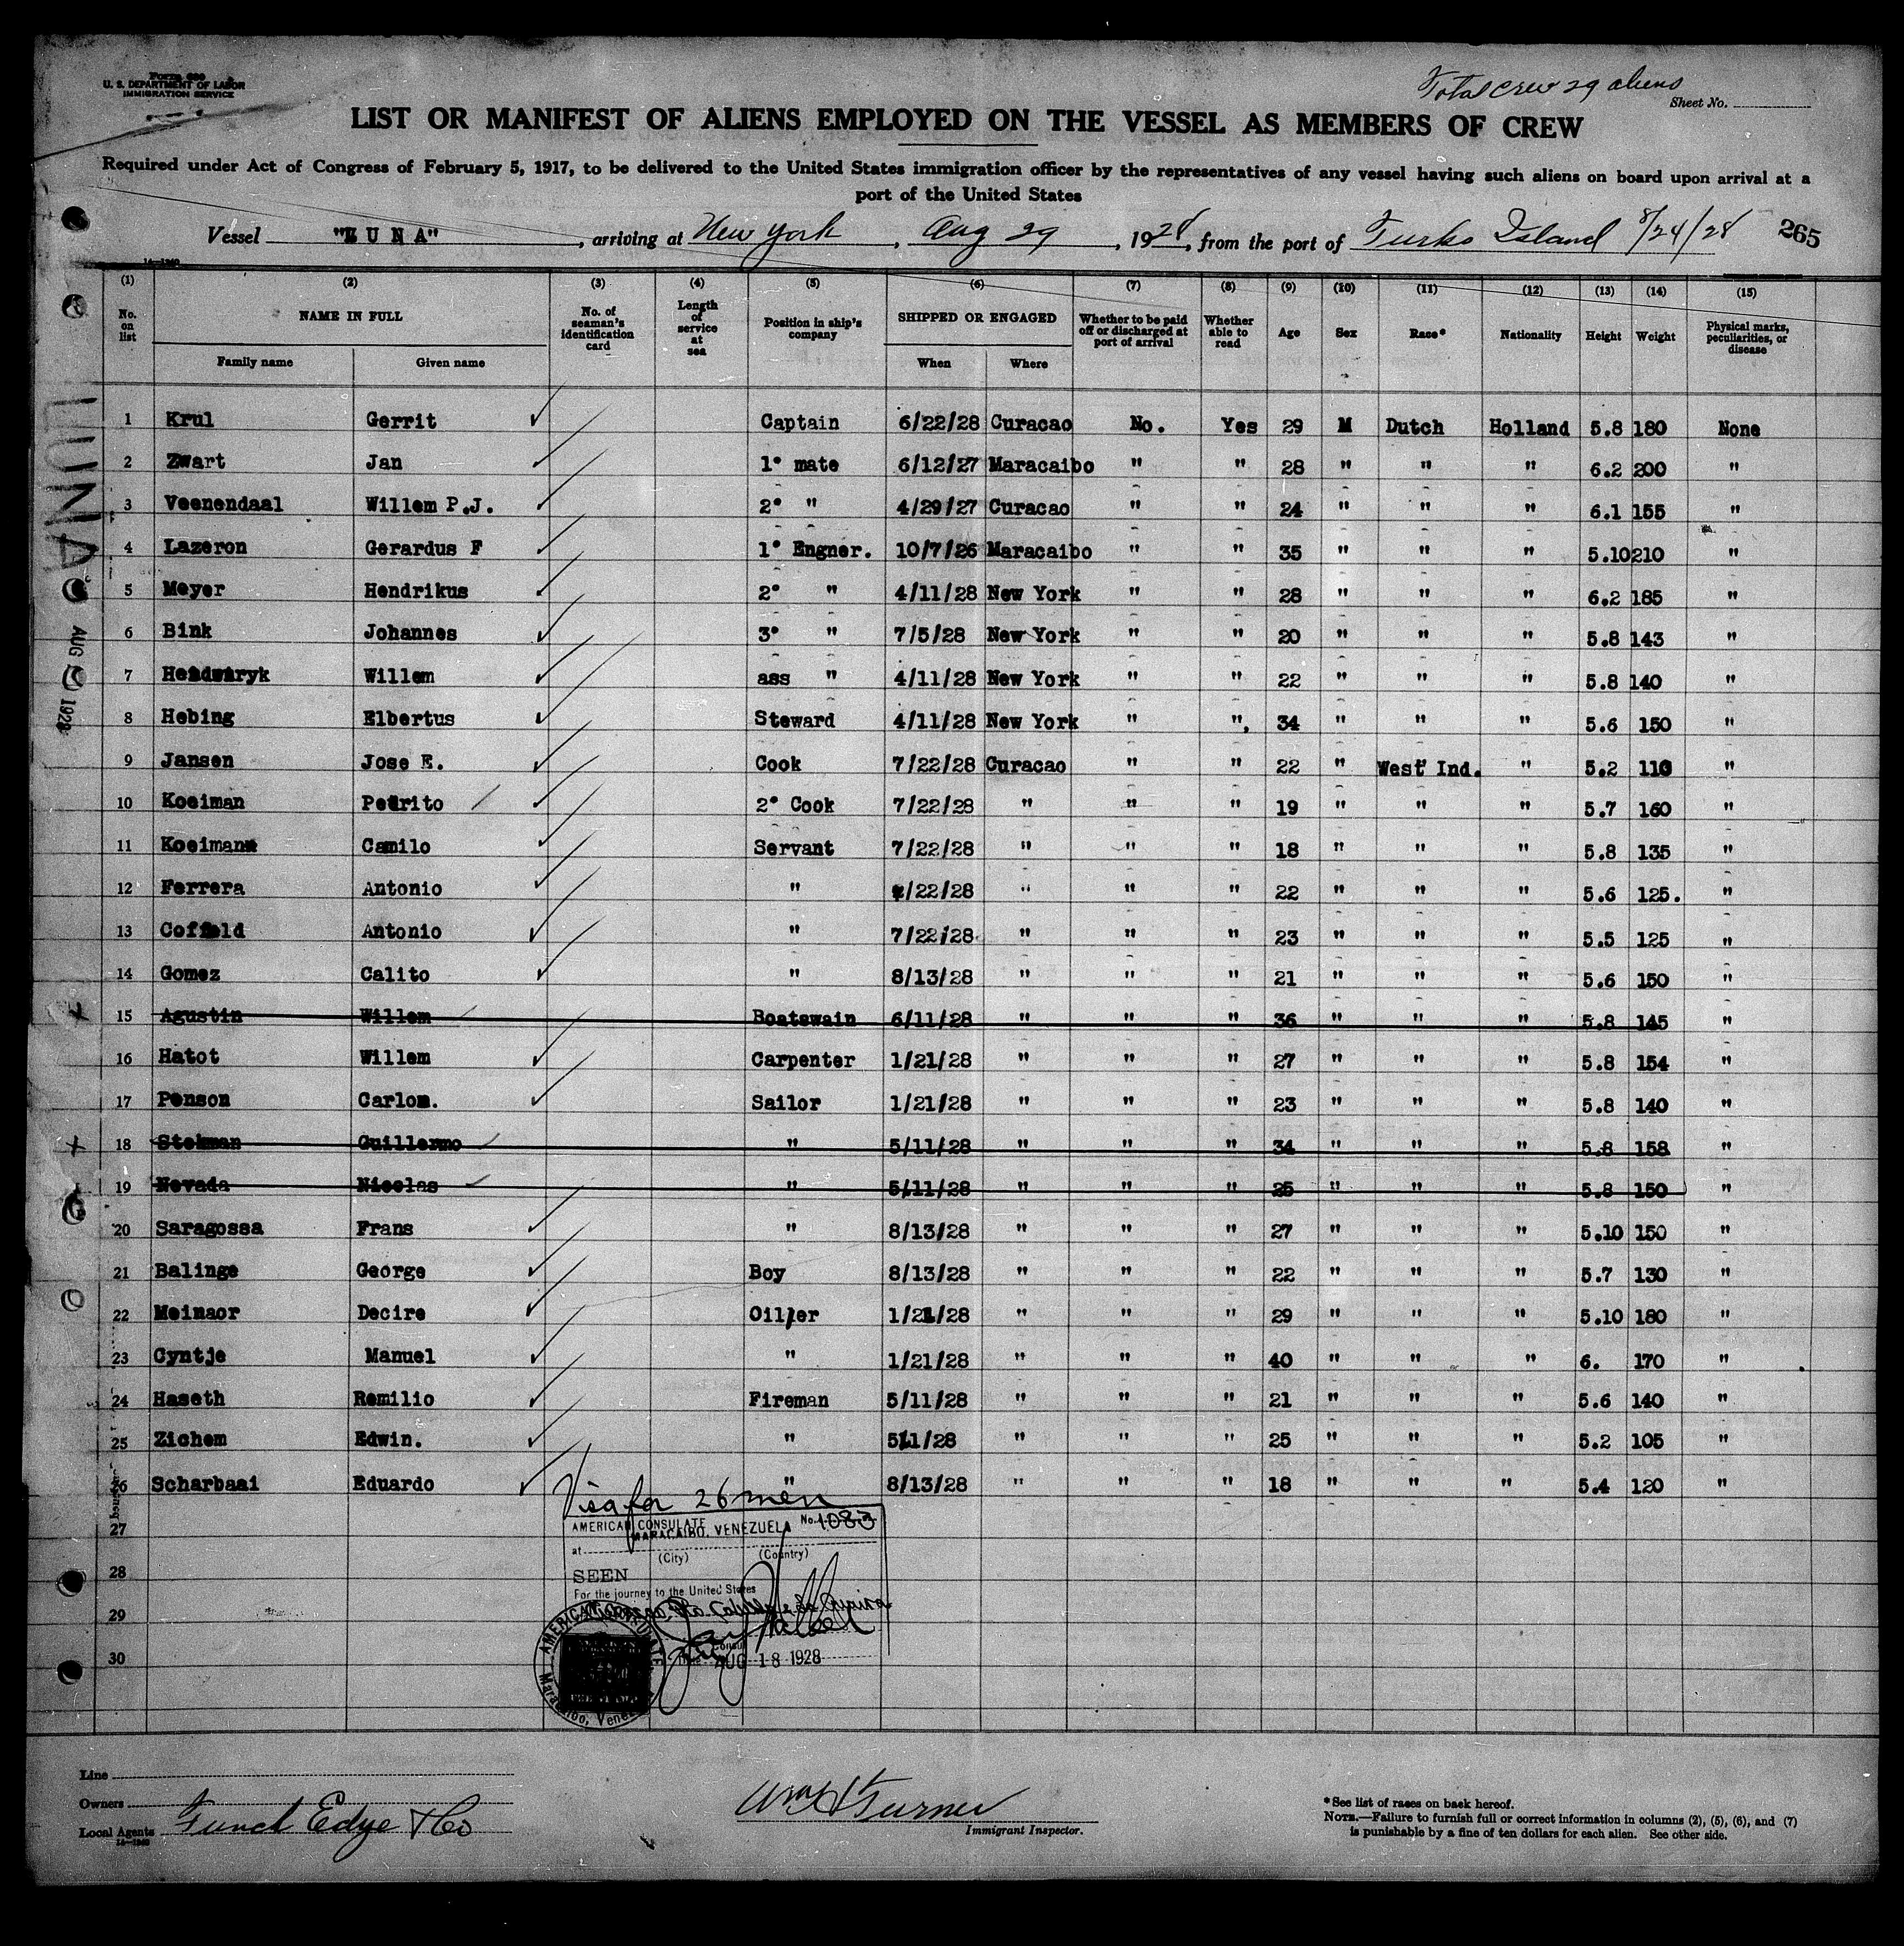 Form 680
U. S. DEPARTMENT OF LABOR
IMMIGRATION SERVICE
Total crew 29 aliens
Sheet No.
LIST OR MANIFEST OF ALIENS EMPLOYED ON THE VESSEL AS MEMBERS OF CREW
Required under Act of Congress of February 5, 1917, to be delivered to the United States immigration officer by the representatives of any vessel having such aliens on board upon arrival at a
port of the United States
Vessel "LUNA", arriving at New York, Aug 29, 1928, from the port of Turks Island 8/24/28 265
(1) (2) (3) (4) (5) (6) (7) (8) (9) (10) (11) (12) (13) (14) (15)
No. on list NAME IN FULL No. of seaman's identification card Length of service at sea Position in ship's company SHIPPED OR ENGAGED Whether to be paid off or discharged at port of arrival Whether able to read Age Sex Race* Nationality Height Weight Physical marks, peculiarities, or disease
Family name Given name When Where
1 Krul Gerrit Captain 6/22/28 Curacao No. Yes 29 M Dutch Holland 5.8 180 None
2 Zwart Jan 1° mate 6/12/27 Maracaibo " " 28 " " " 6.2 200 "
3 Veenendaal Willem P.J. 2° " 4/29/27 Curacao " " 24 " " " 6.1 155 "
4 Lazeron Gerardus F 1° Engner. 10/7/26 Maracaibo " " 35 " " " 5.10 210 "
5 Meyer Hendrikus 2° " 4/11/28 New York " " 28 " " " 6.2 185 "
6 Bink Johannes 3° " 7/5/28 New York " " 20 " " " 5.8 143 "
7 Willem ass " 4/11/28 New York " " 22 " " " 5.8 140 "
8 Hebing Elbertus Steward 4/11/28 New York " ", 34 " " " 5.6 150 "
9 Jansen Jose E. Cook 7/22/28 Curacao " " 22 " West Ind. " 5.2 110 "
10 Koeiman Pedrito 2° Cook 7/22/28 " " " 19 " " " 5.7 160 "
11 Koeiman Camilo Servant 7/22/28 " " " 18 " " " 5.8 135 "
12 Ferrera Antonio " 7/22/28 " " " 22 " " " 5.6 125. "
13 Antonio " 7/22/28 " " " 23 " " " 5.5 125 "
14 Gomez Calito " 8/13/28 " " " 21 " " " 5.6 150 "
15 Agustin Willem Boatswain 6/11/28 " " " 36 " " " 5.8 145 "
16 Hatot Willem Carpenter 1/21/28 " " " 27 " " " 5.8 154 "
17 Penson Carlom. Sailor 1/21/28 " " " 23 " " " 5.8 140 "
18 Stekman Guillermo " 5/11/28 " " " 34 " " " 5.8 158 "
19 Nevada Nicolas " 5/11/28 " " " 25 " " " 5.8 150 "
20 Saragossa Frans " 8/13/28 " " " 27 " " " 5.10 150 "
21 Balinge George Boy 8/13/28 " " " 22 " " " 5.7 130 "
22 Meinaor Decire Oiller 1/21/28 " " " 29 " " " 5.10 180 "
23 Cyntje Manuel " 1/21/28 " " " 40 " " " 6. 170 "
24 Haseth Remilio Fireman 5/11/28 " " " 21 " " " 5.6 140 "
25 Zichem Edwin. " 5/11/28 " " " 25 " " " 5.2 105 "
26 Scharbaai Eduardo " 8/13/28 " " " 18 " " " 5.4 120 "
27
28
29
30
Visa for 26 men
AMERICAN CONSULATE No. 1083
at MARACAIBO, VENEZUELA
(City) (Country)
SEEN
For the journey to the United States
Consul
AUG 18 1928
AMERICAN CONSULATE Maracaibo, Venezuela
LUNA
AUG 1928
Line
Owners
Local Agents Funch Edye & Co
Wm H Turner
Immigrant Inspector.
*See list of races on back hereof.
NOTE.—Failure to furnish full or correct information in columns (2), (5), (6), and (7)
is punishable by a fine of ten dollars for each alien. See other side.